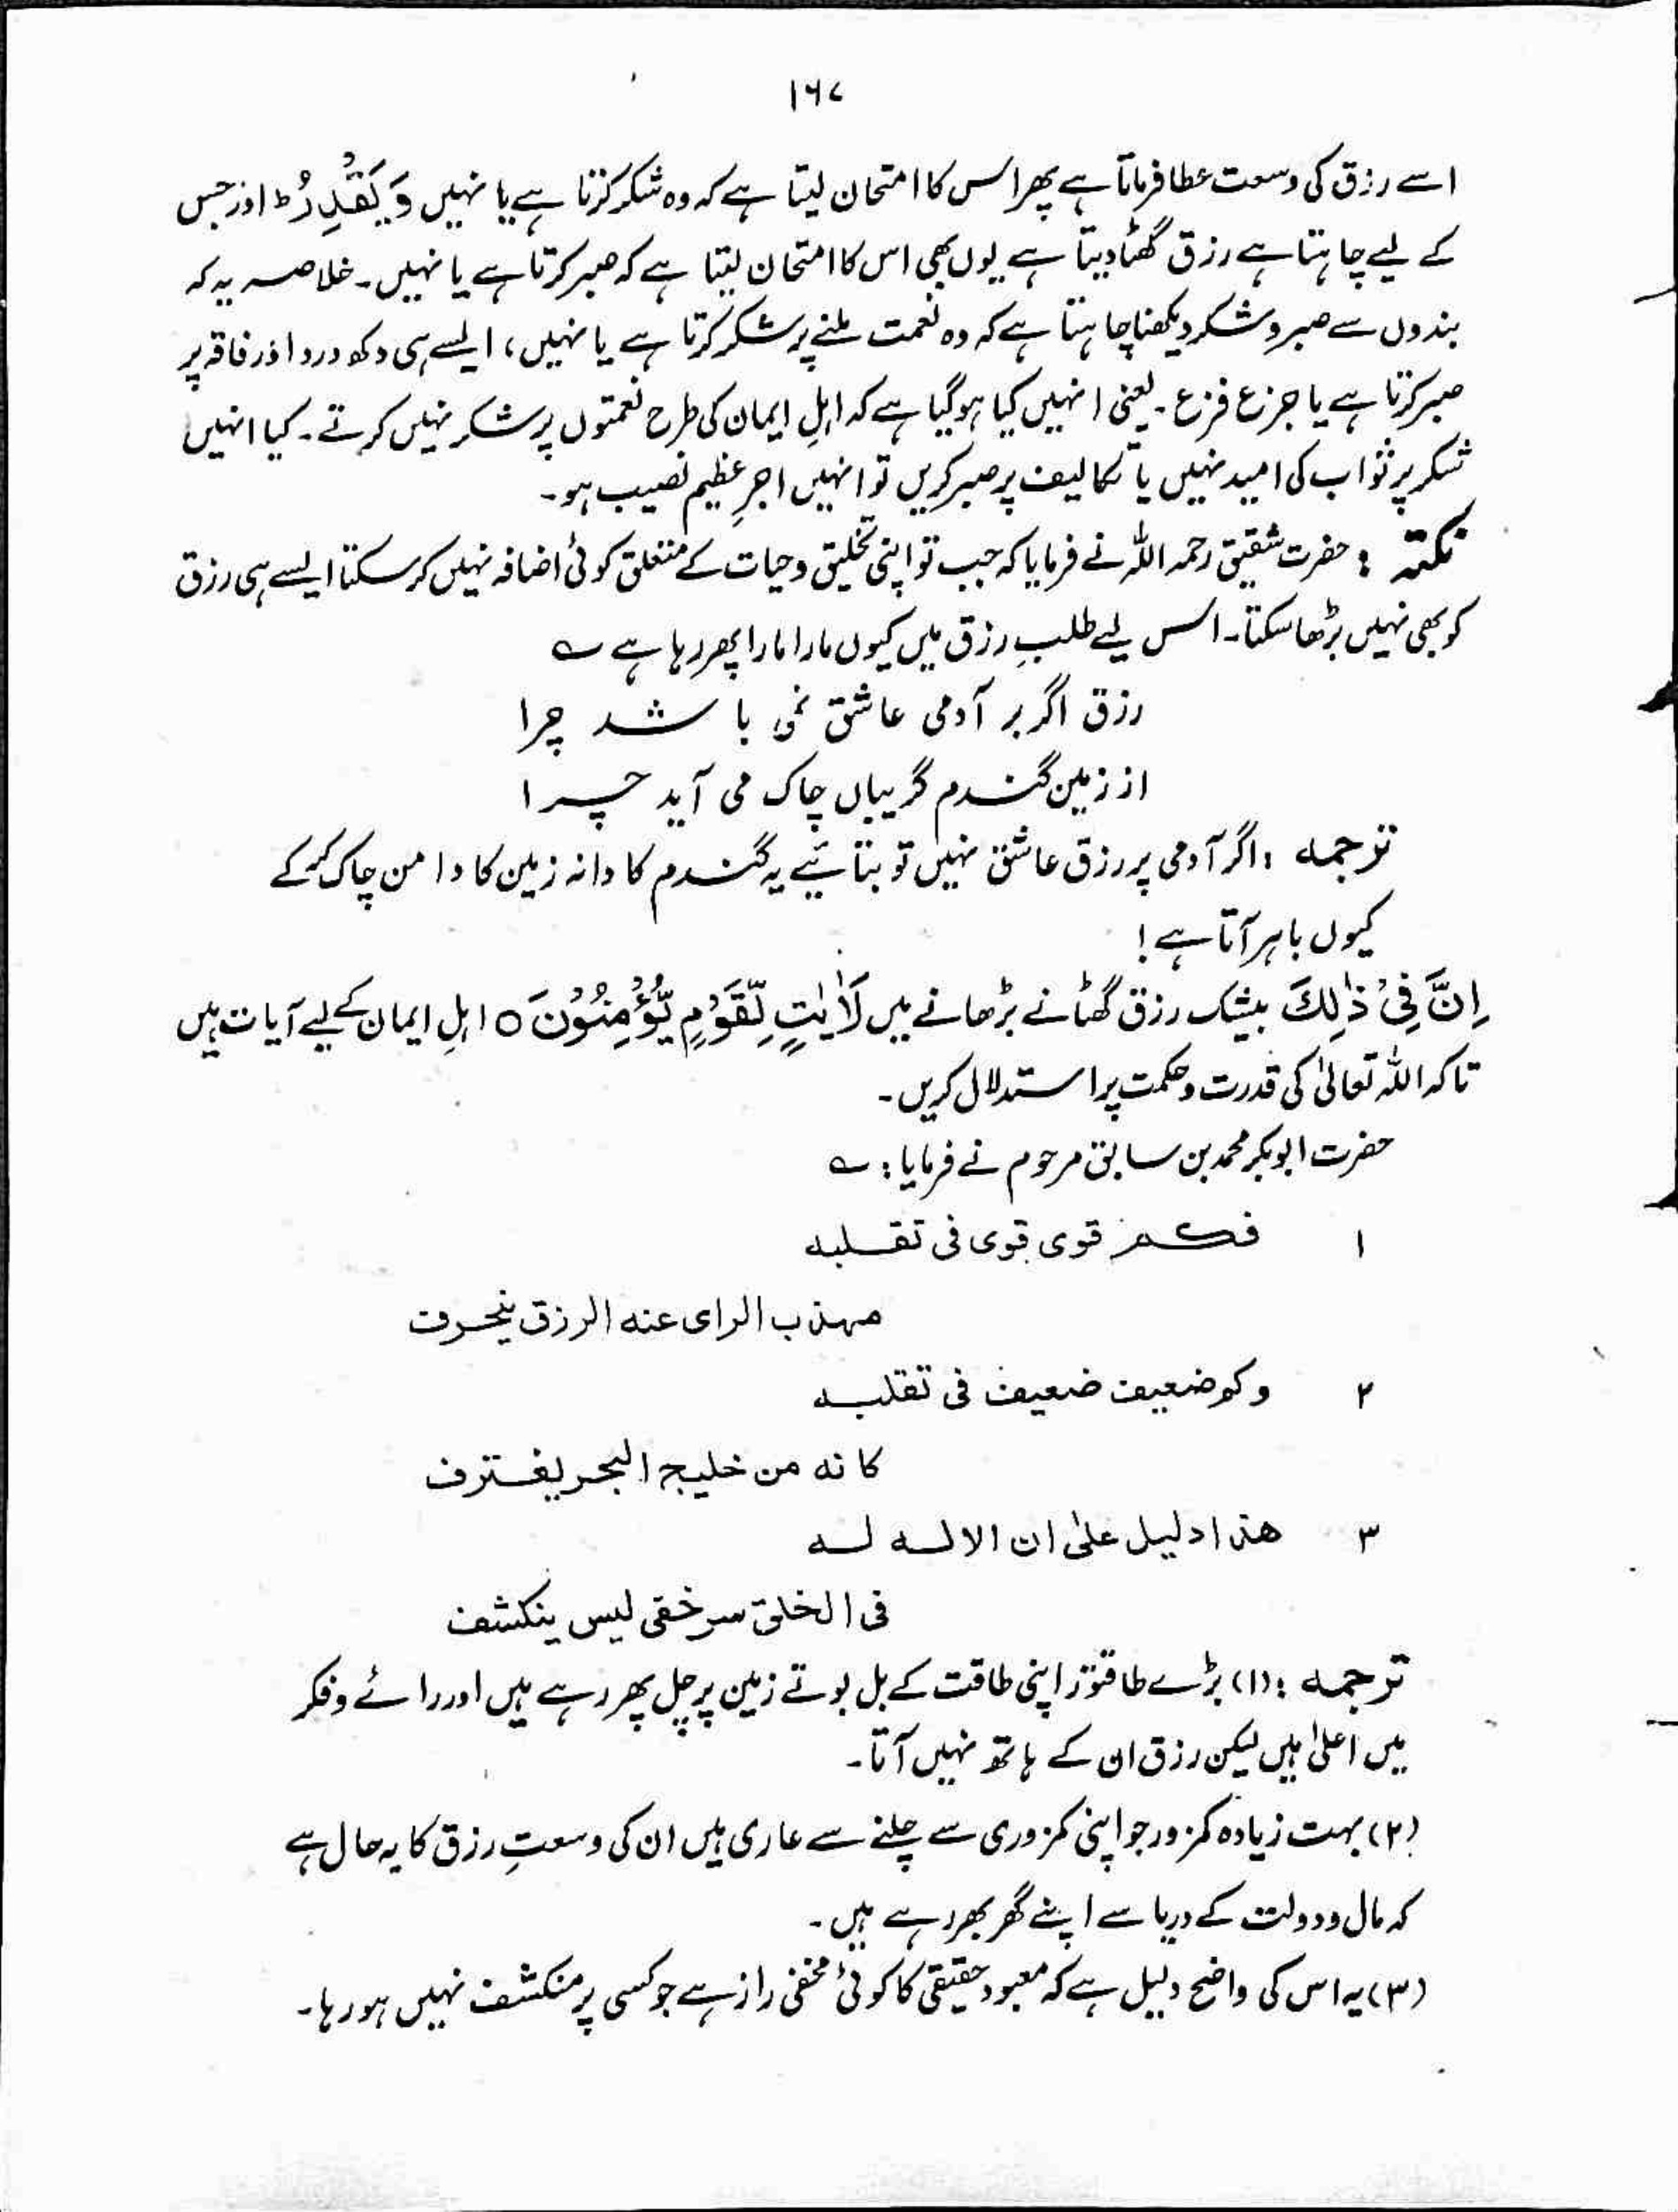 ۱۶۷
اسے رزق کی وسعت عطا فرماتا ہے پھر اس کا امتحان لیتا ہے کہ وہ شکر کرتا ہے یا نہیں وَ یَقْدِرُ ط اور جس
کے لیے چاہتا ہے رزق گھٹا دیتا ہے یوں بھی اس کا امتحان لیتا ہے کہ صبر کرتا ہے یا نہیں۔ خلاصہ یہ کہ
بندوں سے صبر و شکر دیکھنا چاہتا ہے کہ وہ نعمت ملنے پر شکر کرتا ہے یا نہیں، ایسے ہی دکھ درد اور فاقہ پر
صبر کرتا ہے یا جزع فزع۔ یعنی انہیں کیا ہوگیا ہے کہ اہلِ ایمان کی طرح نعمتوں پر شکر نہیں کرتے۔ کیا انہیں
شکر پر ثواب کی امید نہیں یا تکالیف پر صبر کریں تو انہیں اجرِ عظیم نصیب ہو۔
نکتہ : حضرت شقیق رحمہ اللہ نے فرمایا کہ جب تو اپنی تخلیق و حیات کے متعلق کوئی اضافہ نہیں کرسکتا ایسے ہی رزق
کو بھی نہیں بڑھا سکتا۔ اس لیے طلبِ رزق میں کیوں مارا مارا پھر رہا ہے ؎
رزق اگر بر آدمی عاشق نمی باشد چرا
از زمین گندم گریباں چاک می آید چرا
ترجمہ : اگر آدمی پر رزق عاشق نہیں تو بتائیے یہ گندم کا دانہ زمین کا دامن چاک کرکے
کیوں باہر آتا ہے !
اِنَّ فِیْ ذٰلِكَ بیشک رزق گھٹانے بڑھانے میں لَاٰیٰتٍ لِّقَوْمٍ یُّؤْمِنُوْنَ ○ اہلِ ایمان کے لیے آیات ہیں
تاکہ اللہ تعالیٰ کی قدرت و حکمت پر استدلال کریں۔
حضرت ابوبکر محمد بن سابق مرحوم نے فرمایا : ؎
۱ فکم قوی قوی فی تقلبه
مهذب الرای عنه الرزق ینحرف
۲ وکم ضعیف ضعیف فی تقلبه
کانه من خلیج البحر یغترف
۳ هذا دلیل علیٰ ان الاله له
فی الخلق سر خفی لیس ینکشف
ترجمہ : (۱) بڑے طاقتور اپنی طاقت کے بل بوتے زمین پر چل پھر رہے ہیں اور رائے و فکر
میں اعلیٰ ہیں لیکن رزق ان کے ہاتھ نہیں آتا۔
(۲) بہت زیادہ کمزور جو اپنی کمزوری سے چلنے سے عاری ہیں ان کی وسعتِ رزق کا یہ حال ہے
کہ مال و دولت کے دریا سے اپنے گھر بھر رہے ہیں۔
(۳) یہ اس کی واضح دلیل ہے کہ معبود حقیقی کا کوئی مخفی راز ہے جو کسی پر منکشف نہیں ہو رہا۔